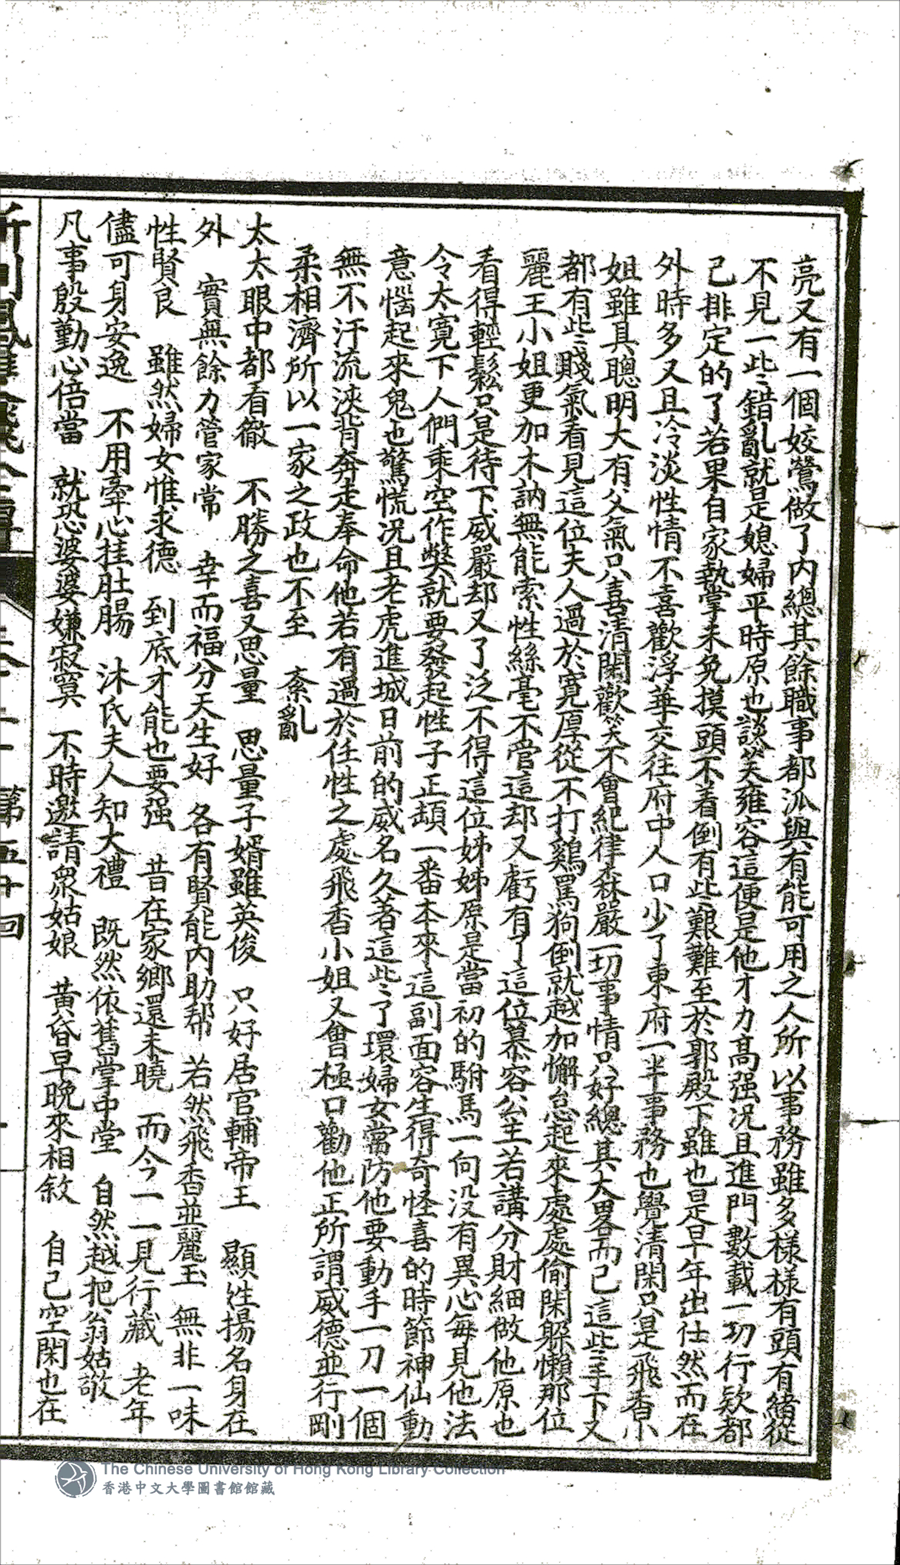 亮又有一個姣鶯做了內總其餘職事都派與有能可用之人所以事務雖多樣樣有頭有緒從
不見一些錯亂就是媳婦平時原也談笑雍容這便是他才力高强况且進門數載一切行欵都
己排定的了若果自家執掌未免摸頭不着倒有些艱難至於郭殿下雖也是早年出仕然而在
外時多又且冷淡性情不喜歡浮華交往府中人口少了東府一半事務也覺清閑只是飛香小
姐雖具聰明大有父氣只喜清閑歡笑不會紀律森嚴一切事情只好總其大畧而己這些手下又
都有些賤氣看見這位夫人過於寬厚從不打鷄罵狗倒就越加懈怠起來處處偷閑躲懶那位
麗王小姐更加木訥無能索性絲毫不管這却又虧有了這位慕容公主若講分財細做他原也
看得輕鬆只是待下威嚴却又了泛不得這位姊姊原是當初的駙馬一向没有異心每見他法
令太寬下人們乘空作獘就要發起性子正頡一番本來這副面容生得奇怪喜的時節神仙動
意惱起來鬼也驚慌况且老虎進城日前的威名久著這些了環婦女當防他要動手一刀一個
無不汗流浹背奔走奉命他若有過於任性之處飛香小姐又會極口勸他正所謂威德並行剛
柔相濟所以一家之政也不至 紊亂
太太眼中都看徹 不勝之喜又思量 思量子婿雖英俊 只好居官輔帝王 顯姓揚名身在
外 實無餘力管家常 幸而福分天生好 各有賢能內助幇 若然飛香並麗玉 無非一味
性賢良 雖然婦女惟求德 到底才能也要强 昔在家鄉還未曉 而今一一見行藏 老年
儘可身安逸 不用牽心挂肚腸 沐氏夫人知大禮 既然依舊掌中堂 自然越把翁姑敬
凡事殷勤心倍當 就恐婆婆嫌寂寞 不時邀請衆姑娘 黃昏早晚來相敘 自己空閑也在
第五十回
The Chinese University of Hong Kong Library Collection
香港中文大學圖書館館藏